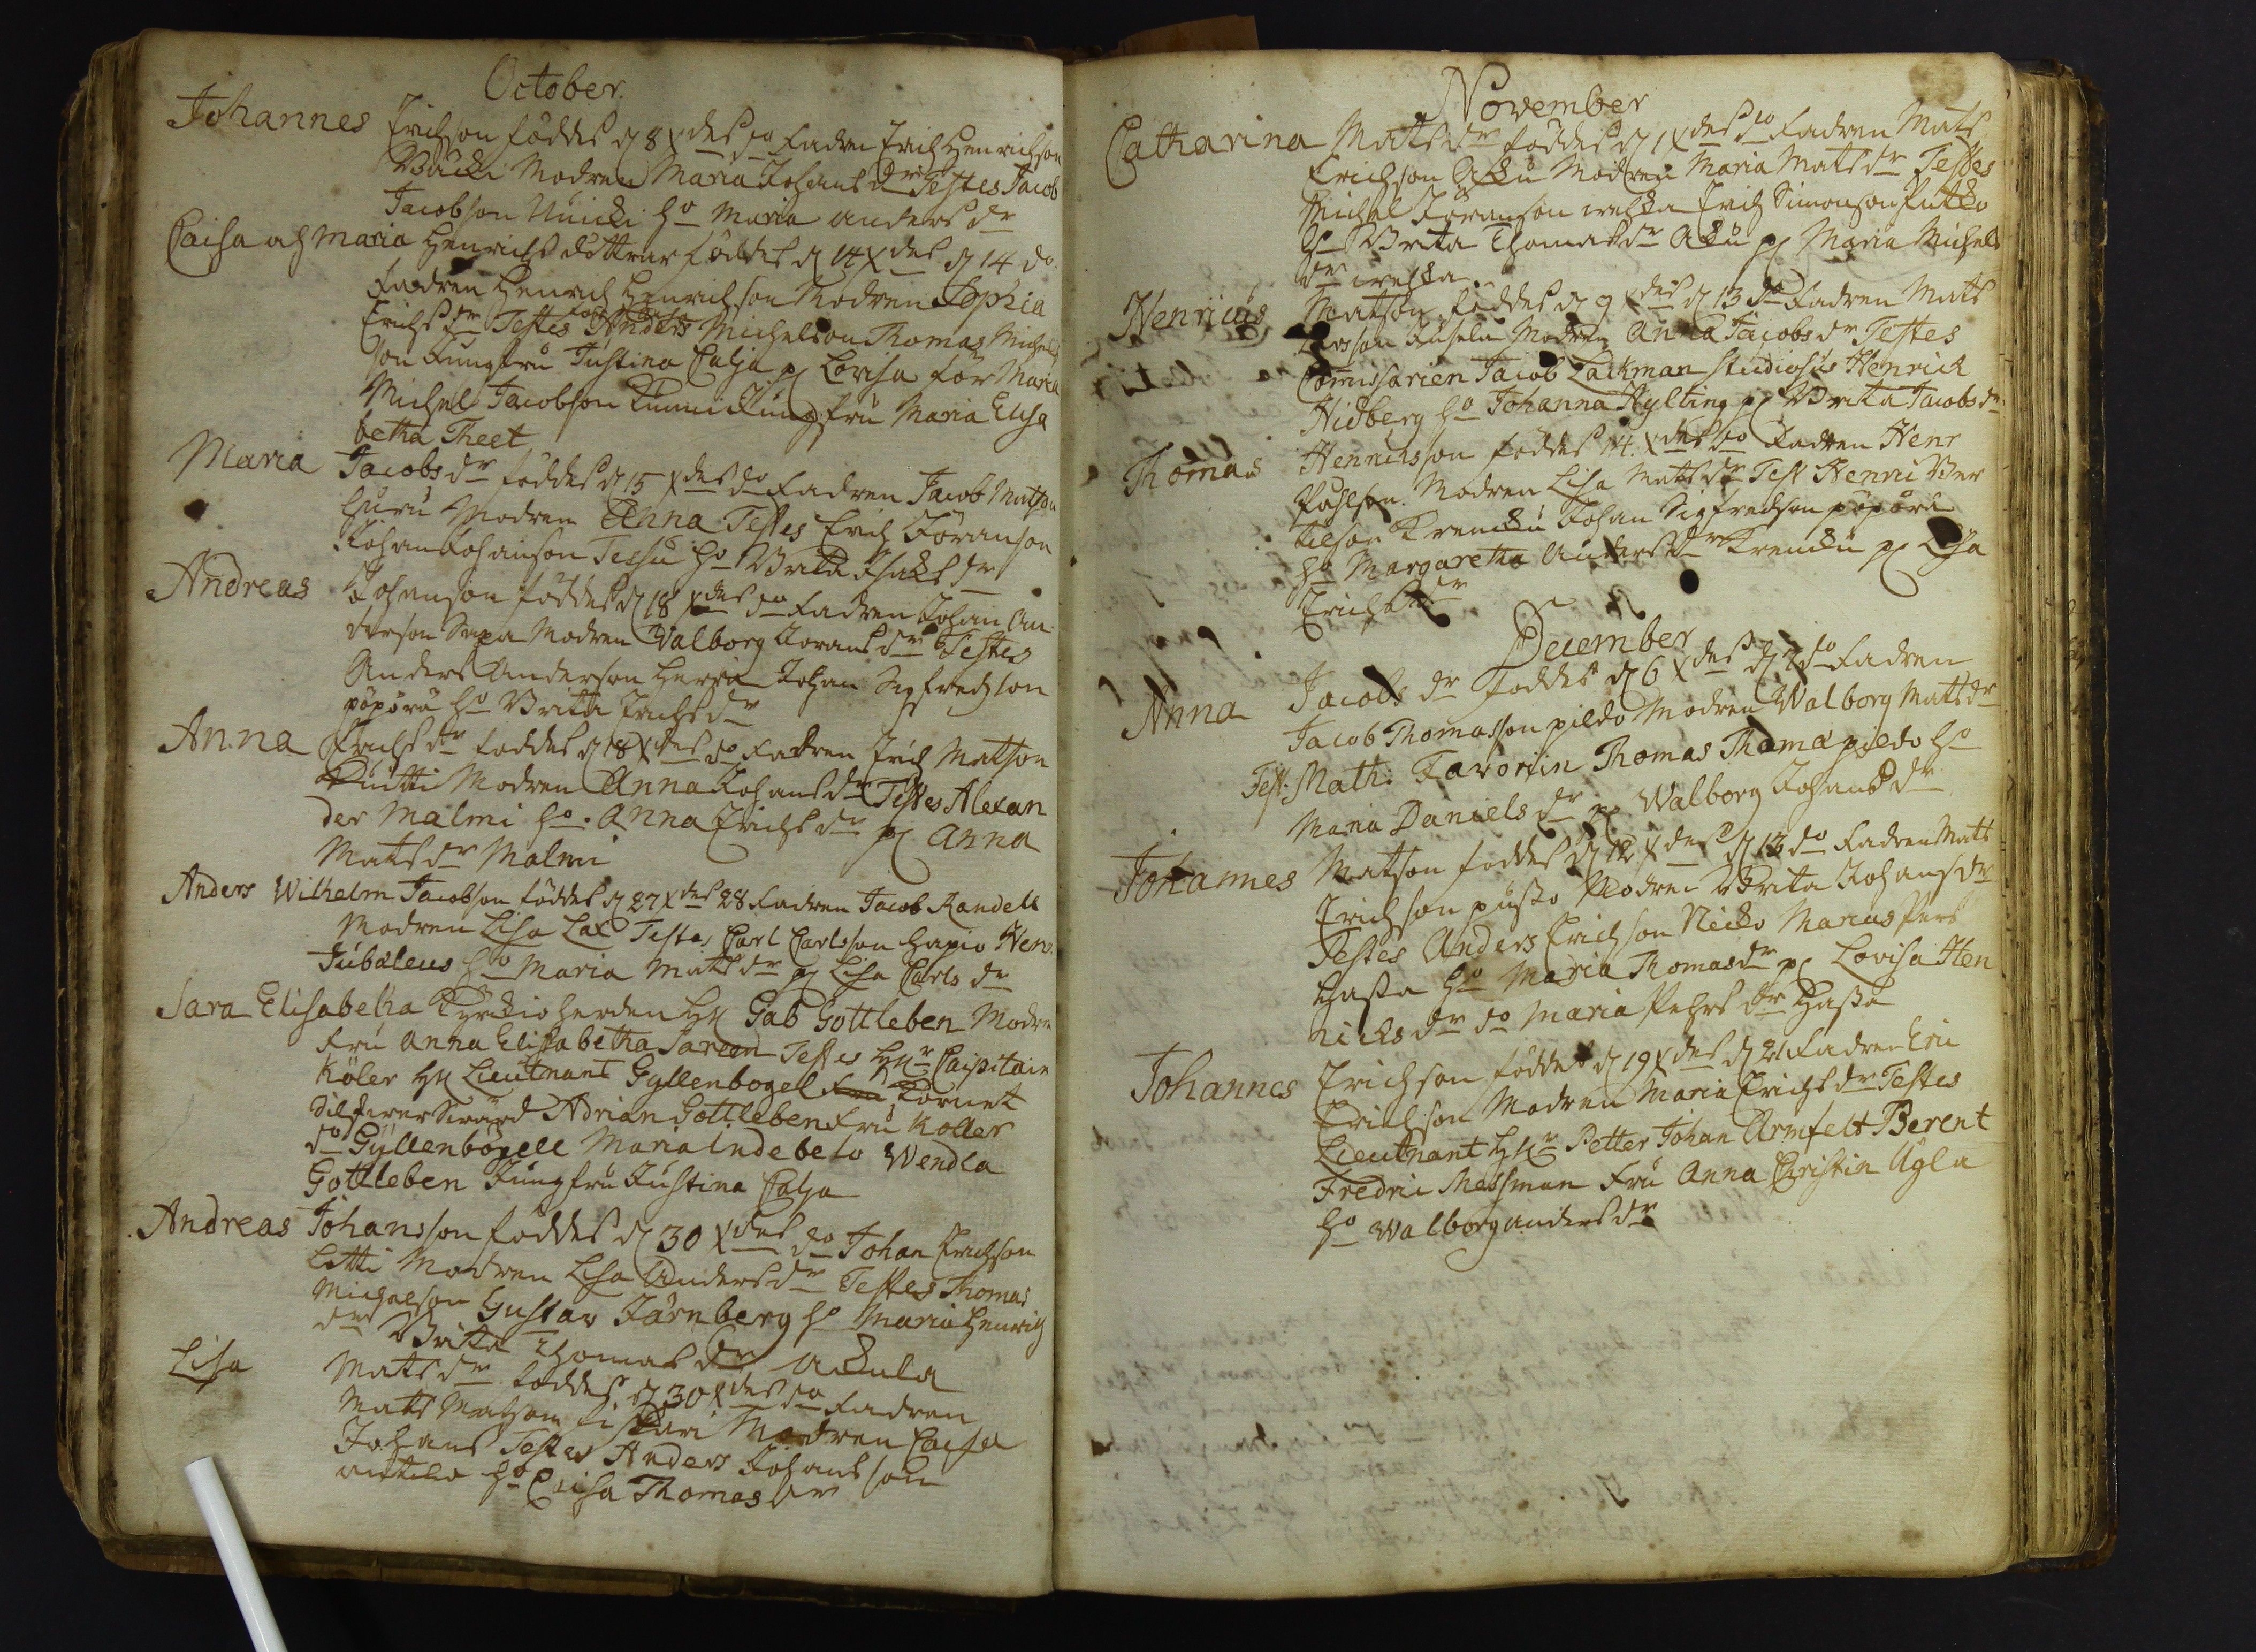 October.
Johannes Erichson föddes d 8 Xdes do Fadren Erich Henrichson
Modren Maria Johansdr Testes Jacob
Jacobson ho Maria Andersdr
Caisa och Maria Henrichs döttrar föddes d 14 Xdes d 14 do.
Fadren Henrich Henrichson Modren Sophia
Erichsdr Testes Anders Michelson Thomas Michels
son Jungfru Justina Calja pg Lovisa for Maria
Michel Jacobson Jungfru Maria Elisa
betha Theet
Maria Jacobsdr föddes d 15 Xdes do Fadren Jacob Matson
Huru Modren Anna Testes Erich Jöranson
Johan Johanson Tessu ho Brita Isaksdr
Andreas Johanson föddes d 18 Xdes do Fadren Johan An
derson Modren Valborg Joransdr Testes
Anders Anderson Johan Sigfredson
pöpörü ho Brita Erichsdr
Anna Erichsdr föddes d 18 Xdes do Fadren Erich Matson
Modren Anna Johansdr Testes Alexan
der Malmi ho. Anna Erichsdr pg Anna
Matsdr Malmi
Anders Wilhelm Jacobson föddes d 27 Xdes 28 Fadren Jacob Randell
Modren Lisa Lax Testes Carl Carlsson hapio Hen.
Jubaleus ho Maria Matsdr pg Lisa Carlsdr
Sara Elisabetha Kyrckioherden Gab Gottleben Modren
Fru Anna Elisabetha Sareen Testes Capitain
Köler Lieutnant Gyllenbogell Cornet
Adrian Gottleben Fru Koller
do Gyllenbögell Maria Indebeto Wendla
Gottleben Jungfru Justina Calja
Andreas Johansson föddes d 30 Xdes do Johan Erichson
Letti Modren Lisa Andersdr Testes Thomas
Michelson Gustav Järnberg ho Maria Henrich
dr Brita Thomasdr Ackula
Lisa Matsdr föddes d 30 Xdes do Fadren
Mats Matson Modren Caisa
Johans Testes Anders Johansson
ho Caisa Thomasdr
November
Catharina Matsdr föddes d 1 Xdes do Fadren Mats
Erichson Modren Maria Matsdr Testes
Michel Jöranson Erich Simonson
ho Brita Thomasdr pg Maria Michels
dr
Henricus Matson föddes d 9 Xdes d 13 do Fadren Mats
Larsson Modren Anna Jacobsdr Testes
Comissarien Jacob Lackman studiosus Henrick
Hidberg ho Johanna Hylting pg Brita Jacobsdr
Thomas Henricsson föddes 14. Xdes do Fadren Henr
Påhlson. Modren Lisa Matsdr Test Henric Ber
tilson Krencku Johan Sigfredson pöpörü
ho Margaretha Andersdr Krencku pg Lisa
Erichsdr
December
Anna Jacobsdr Föddes d 6 Xdes d 7 do Fadren
Jacob Thomasson pildo Modren Walborg Matsdr
Test. Math: Favorin Thomas Thoma pildo ho
Maria Danielsdr pg Walborg Johansdr
Johannes Matson föddes d 12 Xdes d 13 do Fadren Mats
Erichson Modren Brita Johansdr
Testes Anders Erichson Marcus Pers
ho Maria Thomasdr pg Lovisa Hen
ricksdr do Maria Pehrsdr
Johannes Erichson föddes d 19 Xdes d 21 Fadren Eric
Erichson Modren Maria Erichsdr Testes
Lieutnant Petter Johan Armfelt Berent
Fredric Messman Fru Anna Christin Ugla
ho Walborg Andersdr